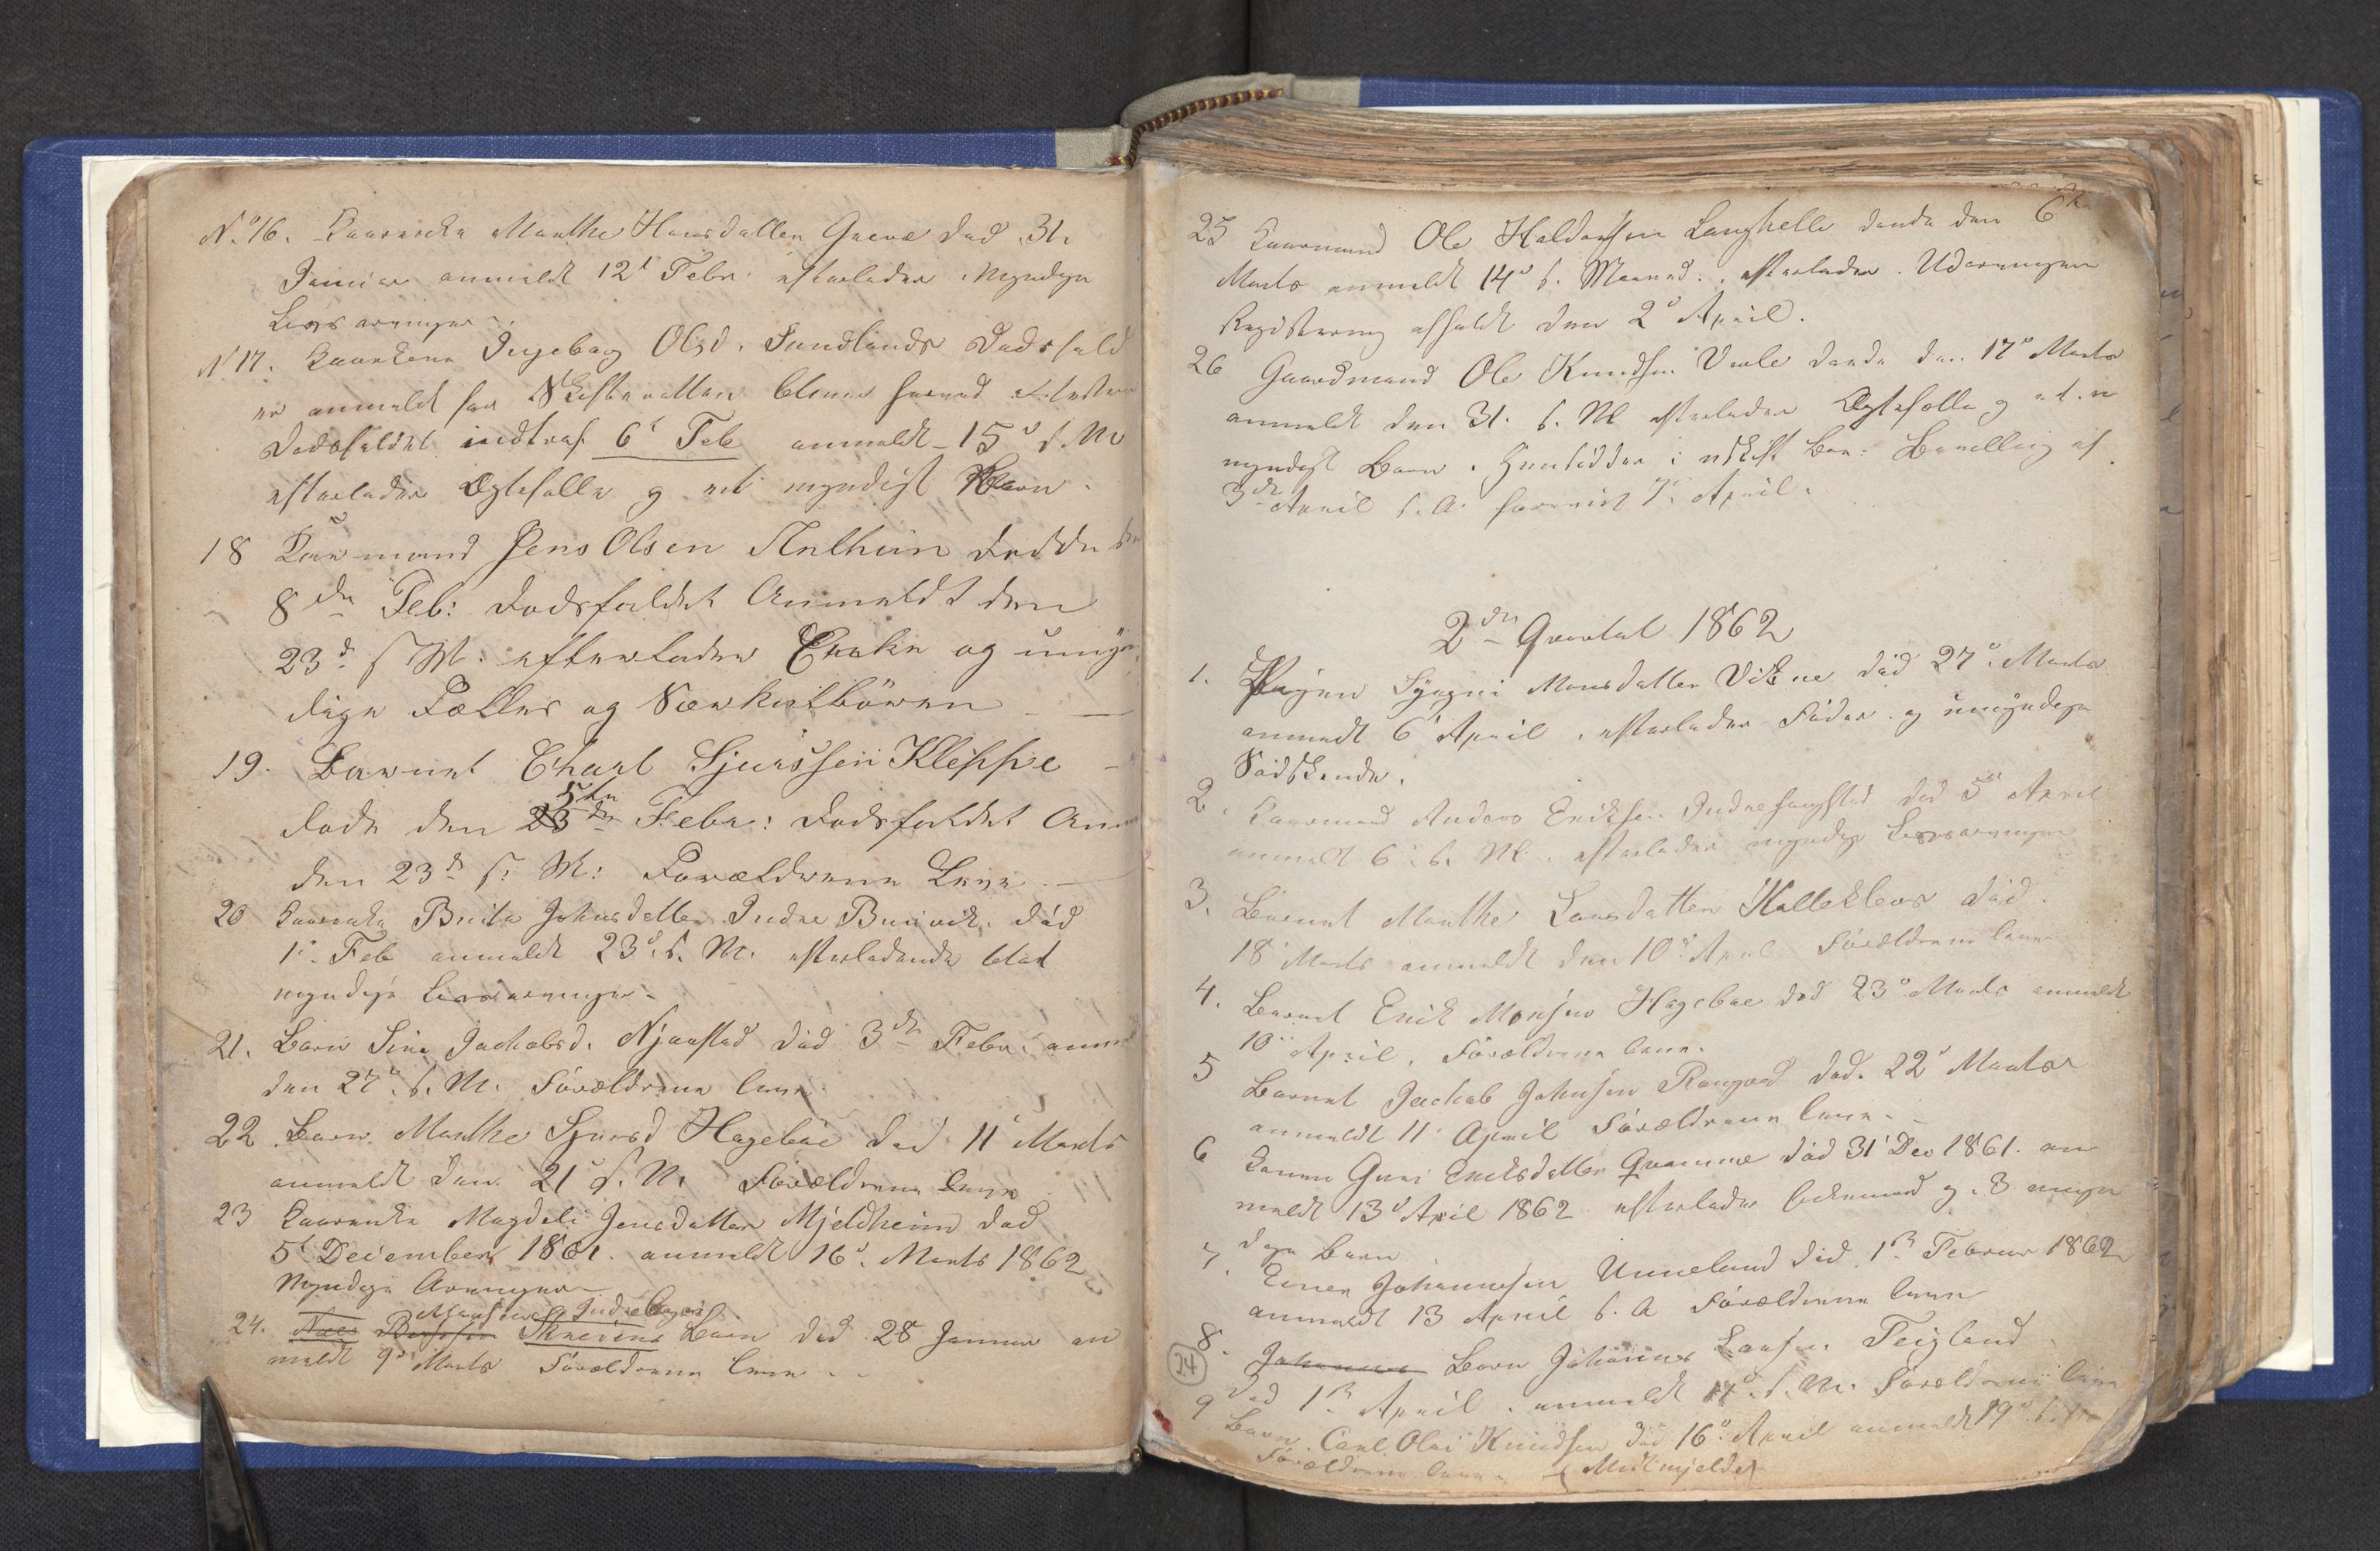 N.º 16. Kaarenke Marthe Hansdatter Greve död 31.
Januar anmeldt 12t Febr. efterlader Myndige
Livsarvinger.
N 17. Kaarkone Ingebor Olsd. Sundlands Dødsfald
er anmeldt for Skifteretten
Dødsfaldet indtraf 6t Feb anmeldt 15d d. M
efterlader Ægtefælle og et myndigt Barn.
18 Kaarmand Jens Olsen Melheim Dødde den
8de Feb: Dødsfaldet Anmeldt den
23d. s. M: efterlader Enke og umyn-
dige Fælles og Særkulbörn
19. Barnet Charl Sjurssen Kleppe
5te
døde den Febr: Dødsfaldet Anm
den 23d s. M: Forældrene Leve.
20 Kaarenke Brita Johnsdatter Indre Bruvik. död
1. Feb anmeldt 23d. s. M. efterladende blot
myndige Livsarvinger.
21. Barn Sina Jachobsd. Njaastad död 3de Febr. anm
den 27d. s. M. Forældrene leve
22 Barn Marthe Sjursd Hagebøe död 11t Marts
anmeldt den 21d s. M. Forældrene leve
23 Kaarenke Magdeli Jensdatter Mjeldheim död
5t December 1861. anmeldt 16d. Marts 1862
Myndige Arvinger
Indre
24. Barn död 28 Januar an
meldt 9d Marts Forældrene leve.
25 Kaarmand Ole Haldorsen Langhelle døde den 6te
Marts anmeldt 14d s. Maaned. efterlader Udarvinger
Registrering afholdt den 2d April.
26 Gaardmand Ole Knudsen Vevle døde den 17d Marts
anmeldt den 31. s. M efterlader Ægtefælle og et
myndigt Barn. Hensidder i uskift Boe. Bevilling af
3de April d. A. forevist 7. April.
2det Qvartal 1862
1. Pigen Sygni Monsdatter Vikne död 27d. Marts
anmeldt 6 April. efterlader Fader og umyndige
Södskende.
2. Kaarmand Anders Eriksen död 5d April
anmeldt 6d. s. M. efterlader myndige Livsarvinger
3. Barnet Marthe Larsdatter Hallekleiv död
18 Marts anmeldt den 10d April Forældrene leve
4. Barnet Erik Monsen Hagebøe död 23d Marts anmeldt
10d April. Forældrene leve.
5 Barnet Jachob Johnsen död. 22d Marts
anmeldt 11 April Forældrene leve.
6 Konen Guri Eriksdatter Qvamme död 31t Dec 1861. an
meldt 13d April 1862 efterlader Enkemand og 3 umyn
dige Børn
7. Einer Johannesen Unneland död 1ste Februar 1862
anmeldt 13 April d. A Forældrene leve
8. Johannes Barn Johannes Larsen Teigland
död 1ste April. anmeldt 17d. s. M. Forældrene leve
24
9 Barn Carl Olai Knudsen död 16d. April anmeldt 19d. s. M
Forældrene leve. (Midtmjelde)